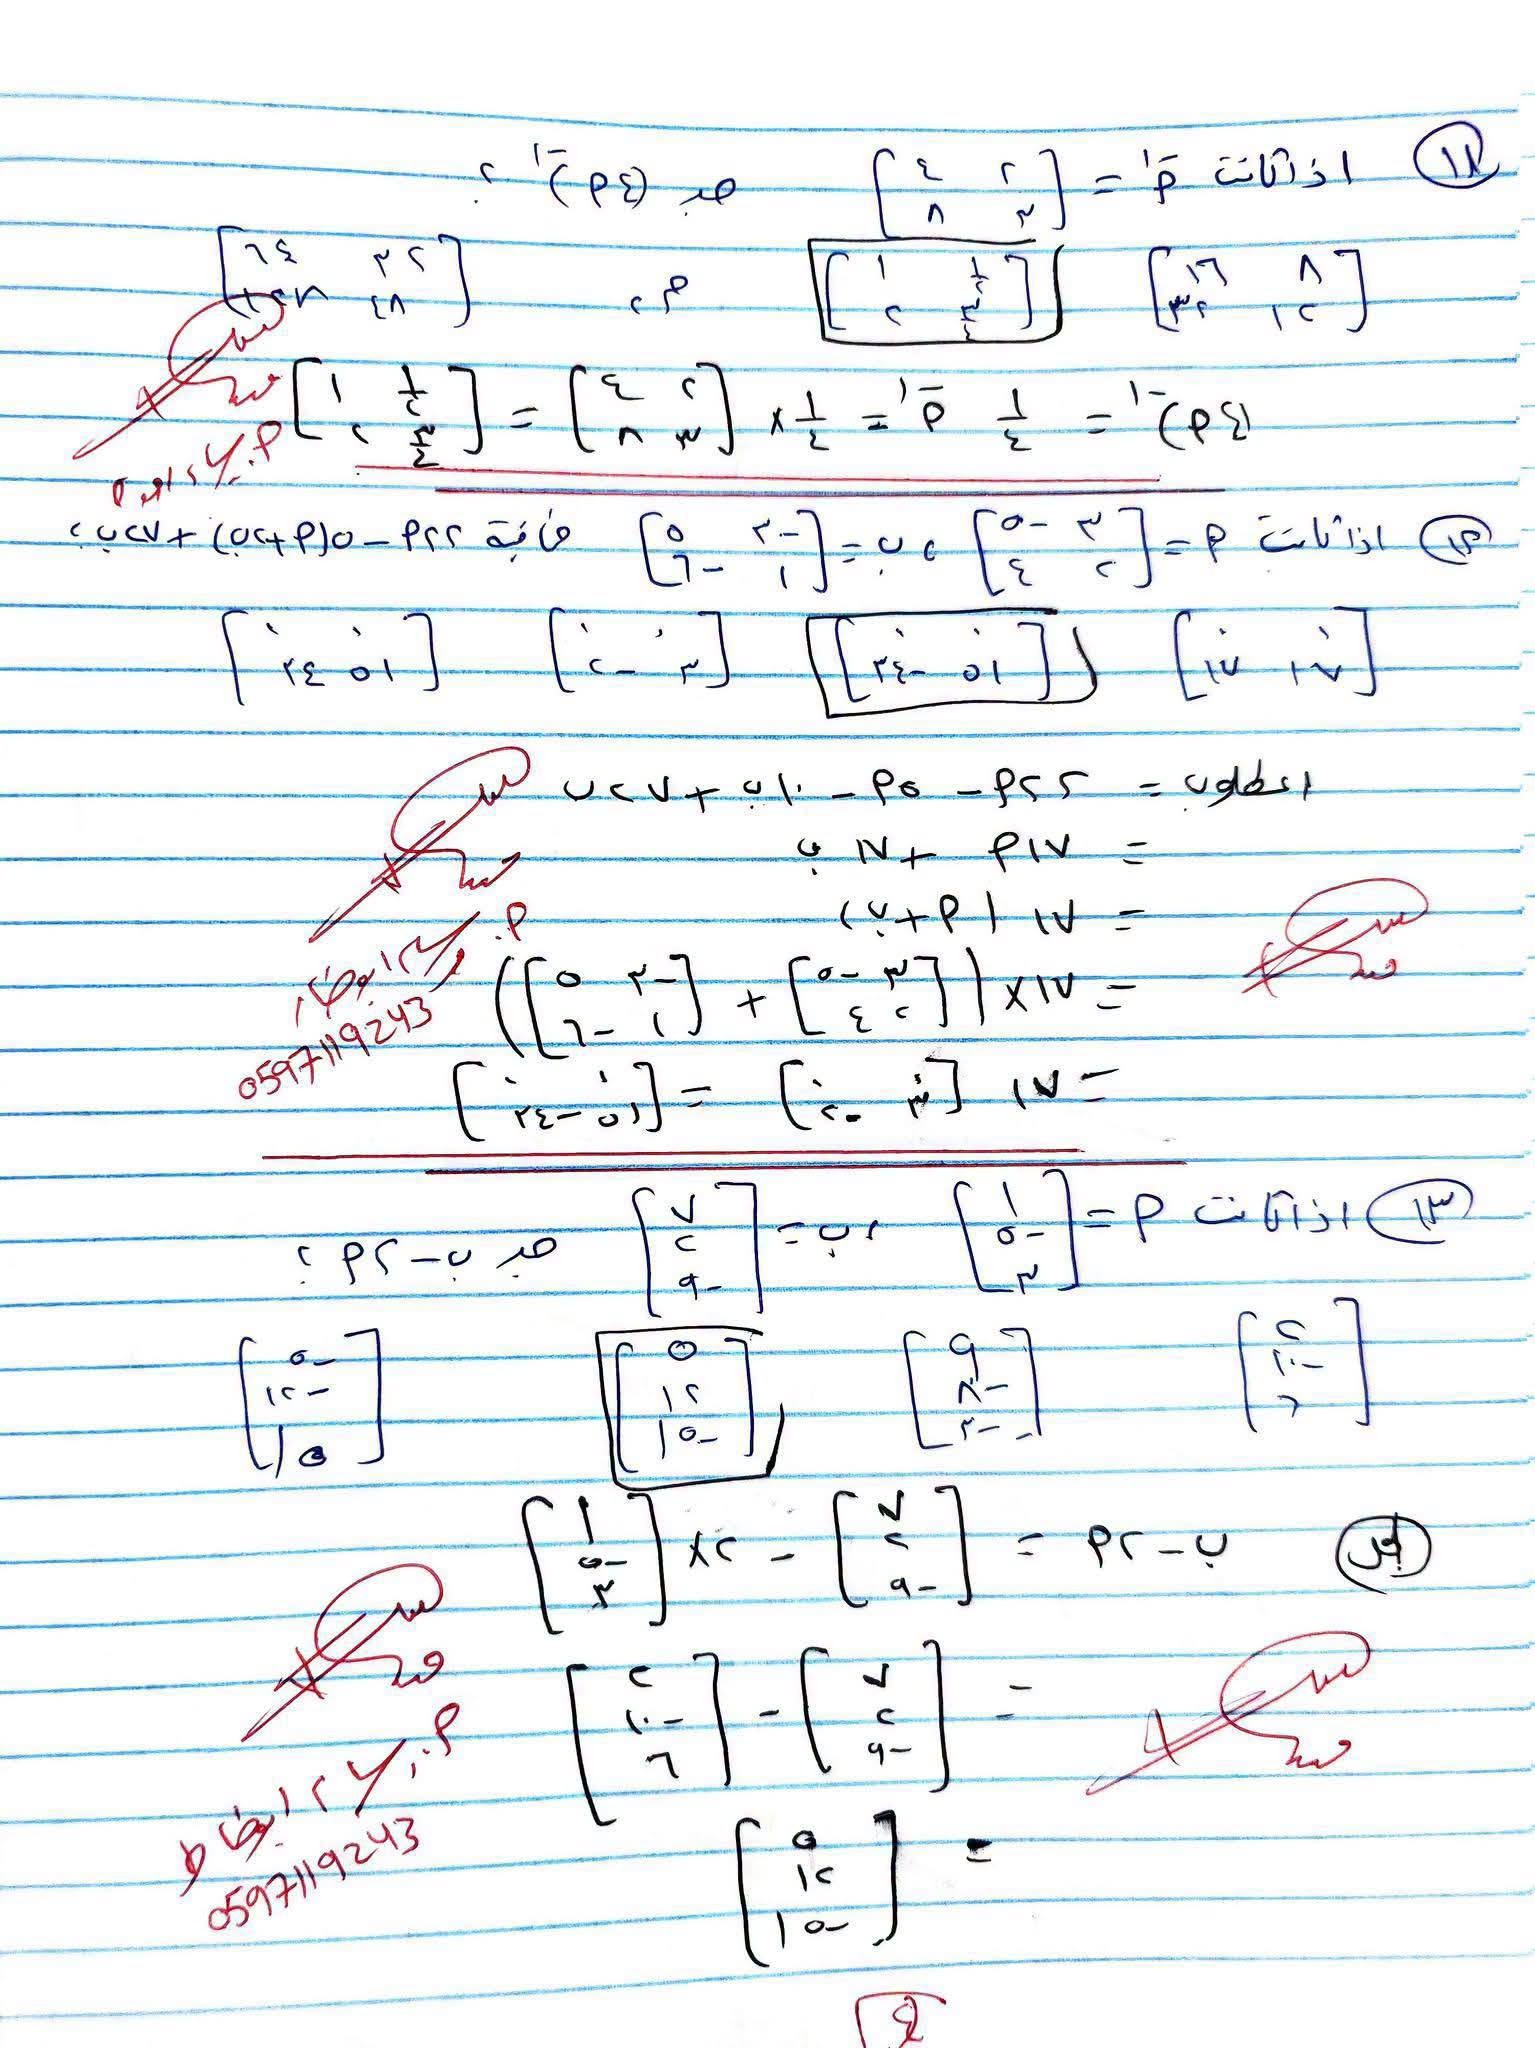 ١١ اذا كانت أ⁻¹ = [٢ ٤ ؛ ٣ ٨] جد (٤أ)⁻¹ ؟
[٨ ١٦ ؛ ١٢ ٣٢] [١/٢ ١ ؛ ٣/٤ ٢] [٣٢ ٦٤ ؛ ٤٨ ١٢٨]
(٤أ)⁻¹ = ١/٤ أ⁻¹ = ١/٤ × [٢ ٤ ؛ ٣ ٨] = [١/٢ ١ ؛ ٣/٤ ٢]
١٢ اذا كانت أ = [٣ -٥ ؛ ٢ ٤] ، ب = [-٣ ٥ ؛ ١ -٦] فإن قيمة ٢٢أ - ٥(أ+٢ب) + ٢٧ب ؟
[٠ ٠ ؛ ١٧ ١٧] [٠ ٠ ؛ ٥١ -٣٤] [٠ ٠ ؛ ٣ -٢] [٠ ٠ ؛ ٥١ ٣٤]
المطلوب = ٢٢أ - ٥أ - ١٠ب + ٢٧ب
= ١٧أ + ١٧ب
= ١٧ (أ+ب)
= ١٧ × ([٣ -٥ ؛ ٢ ٤] + [-٣ ٥ ؛ ١ -٦])
= ١٧ [٠ ٠ ؛ ٣ -٢] = [٠ ٠ ؛ ٥١ -٣٤]
0597119243
١٣ اذا كانت أ = [١ ؛ -٥ ؛ ٣] ، ب = [٧ ؛ ٢ ؛ -٩] جد ب - ٢أ ؟
[٢ ؛ -١٠ ؛ ٦] [٩ ؛ -٨ ؛ -٣] [٥ ؛ ١٢ ؛ -١٥] [-٥ ؛ -١٢ ؛ ١٥]
الحل ب - ٢أ = [٧ ؛ ٢ ؛ -٩] - ٢ × [١ ؛ -٥ ؛ ٣]
= [٧ ؛ ٢ ؛ -٩] - [٢ ؛ -١٠ ؛ ٦]
= [٥ ؛ ١٢ ؛ -١٥]
0597119243
٤